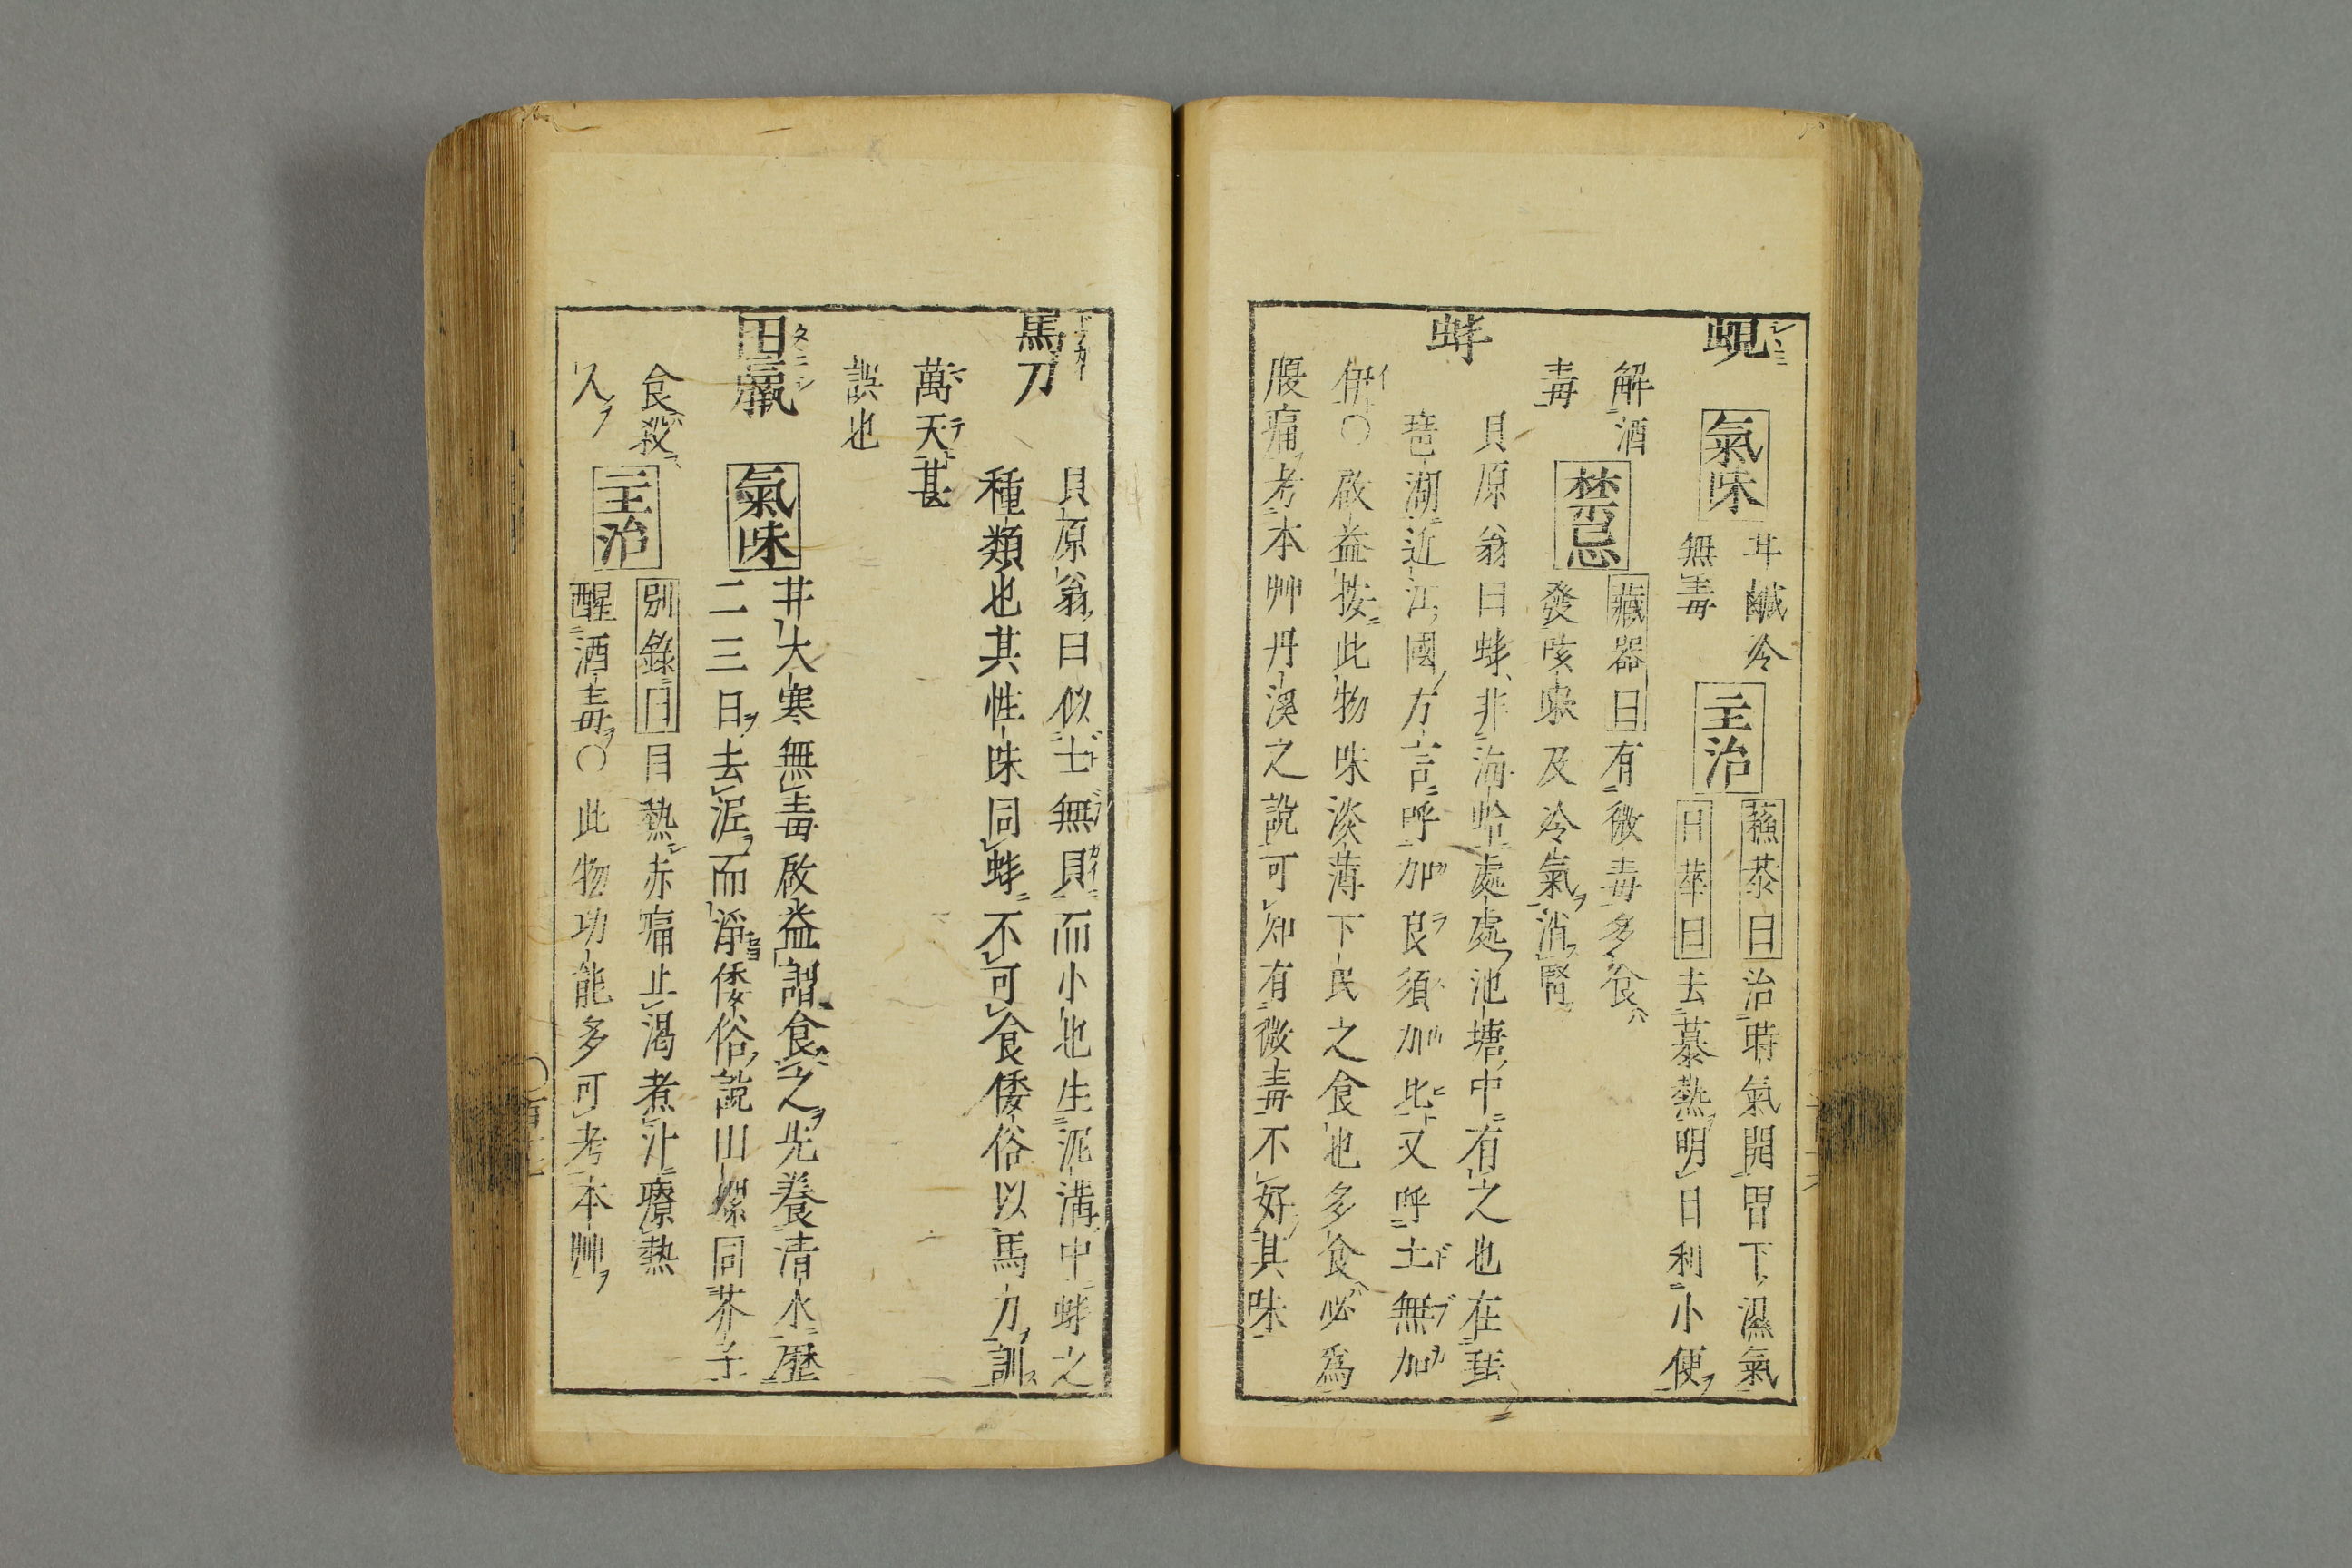 蜆 氣味 甘鹹冷
無毒
主治 蘓恭曰 治時氣開胃下濕氣
日華曰 去暴熱明目利小便
解酒
毒
禁忌 藏器曰 有微毒多食
發咳嗽及冷氣消腎
蚌
貝原翁曰蚌非海蛤處處池塘中有之也在琵
琶湖近江國方言呼加良須加比又呼土無加
伊〇啟益按此物味淡薄下民之食也多食必為
腹痛考本艸丹溪之說可知有微毒不好其味
馬刀
貝原翁曰似土無貝而小也生泥溝中蚌之
種類也其性味同蚌不可食倭俗以馬刀訓
萬天甚
誤也
田蠃 氣味 甘大寒無毒啟益謂食之先養清水歷
二三日去泥而淨倭俗說田螺同芥子
食殺
人
主治 別錄曰 目熱赤痛止渴煮汁療熱
醒酒毒〇此物功能多可考本艸